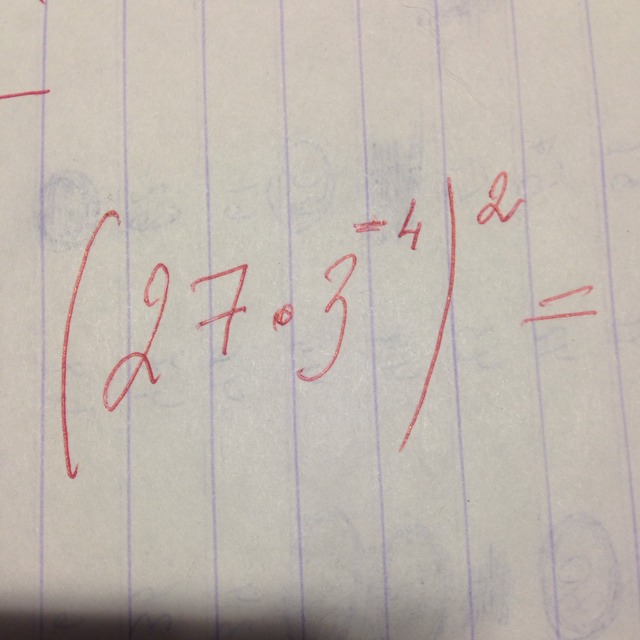 (27·3⁻⁴)² =